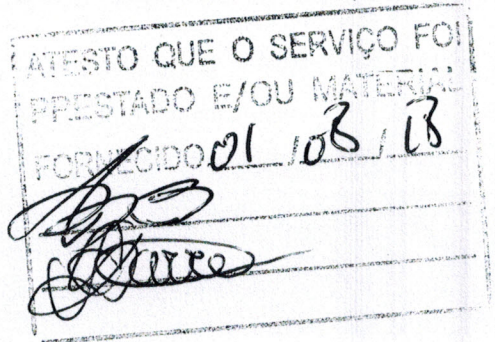 ATESTO QUE O SERVIÇO FOI
PRESTADO E/OU MATERIAL
FORNECIDO 01 / 08 / 13